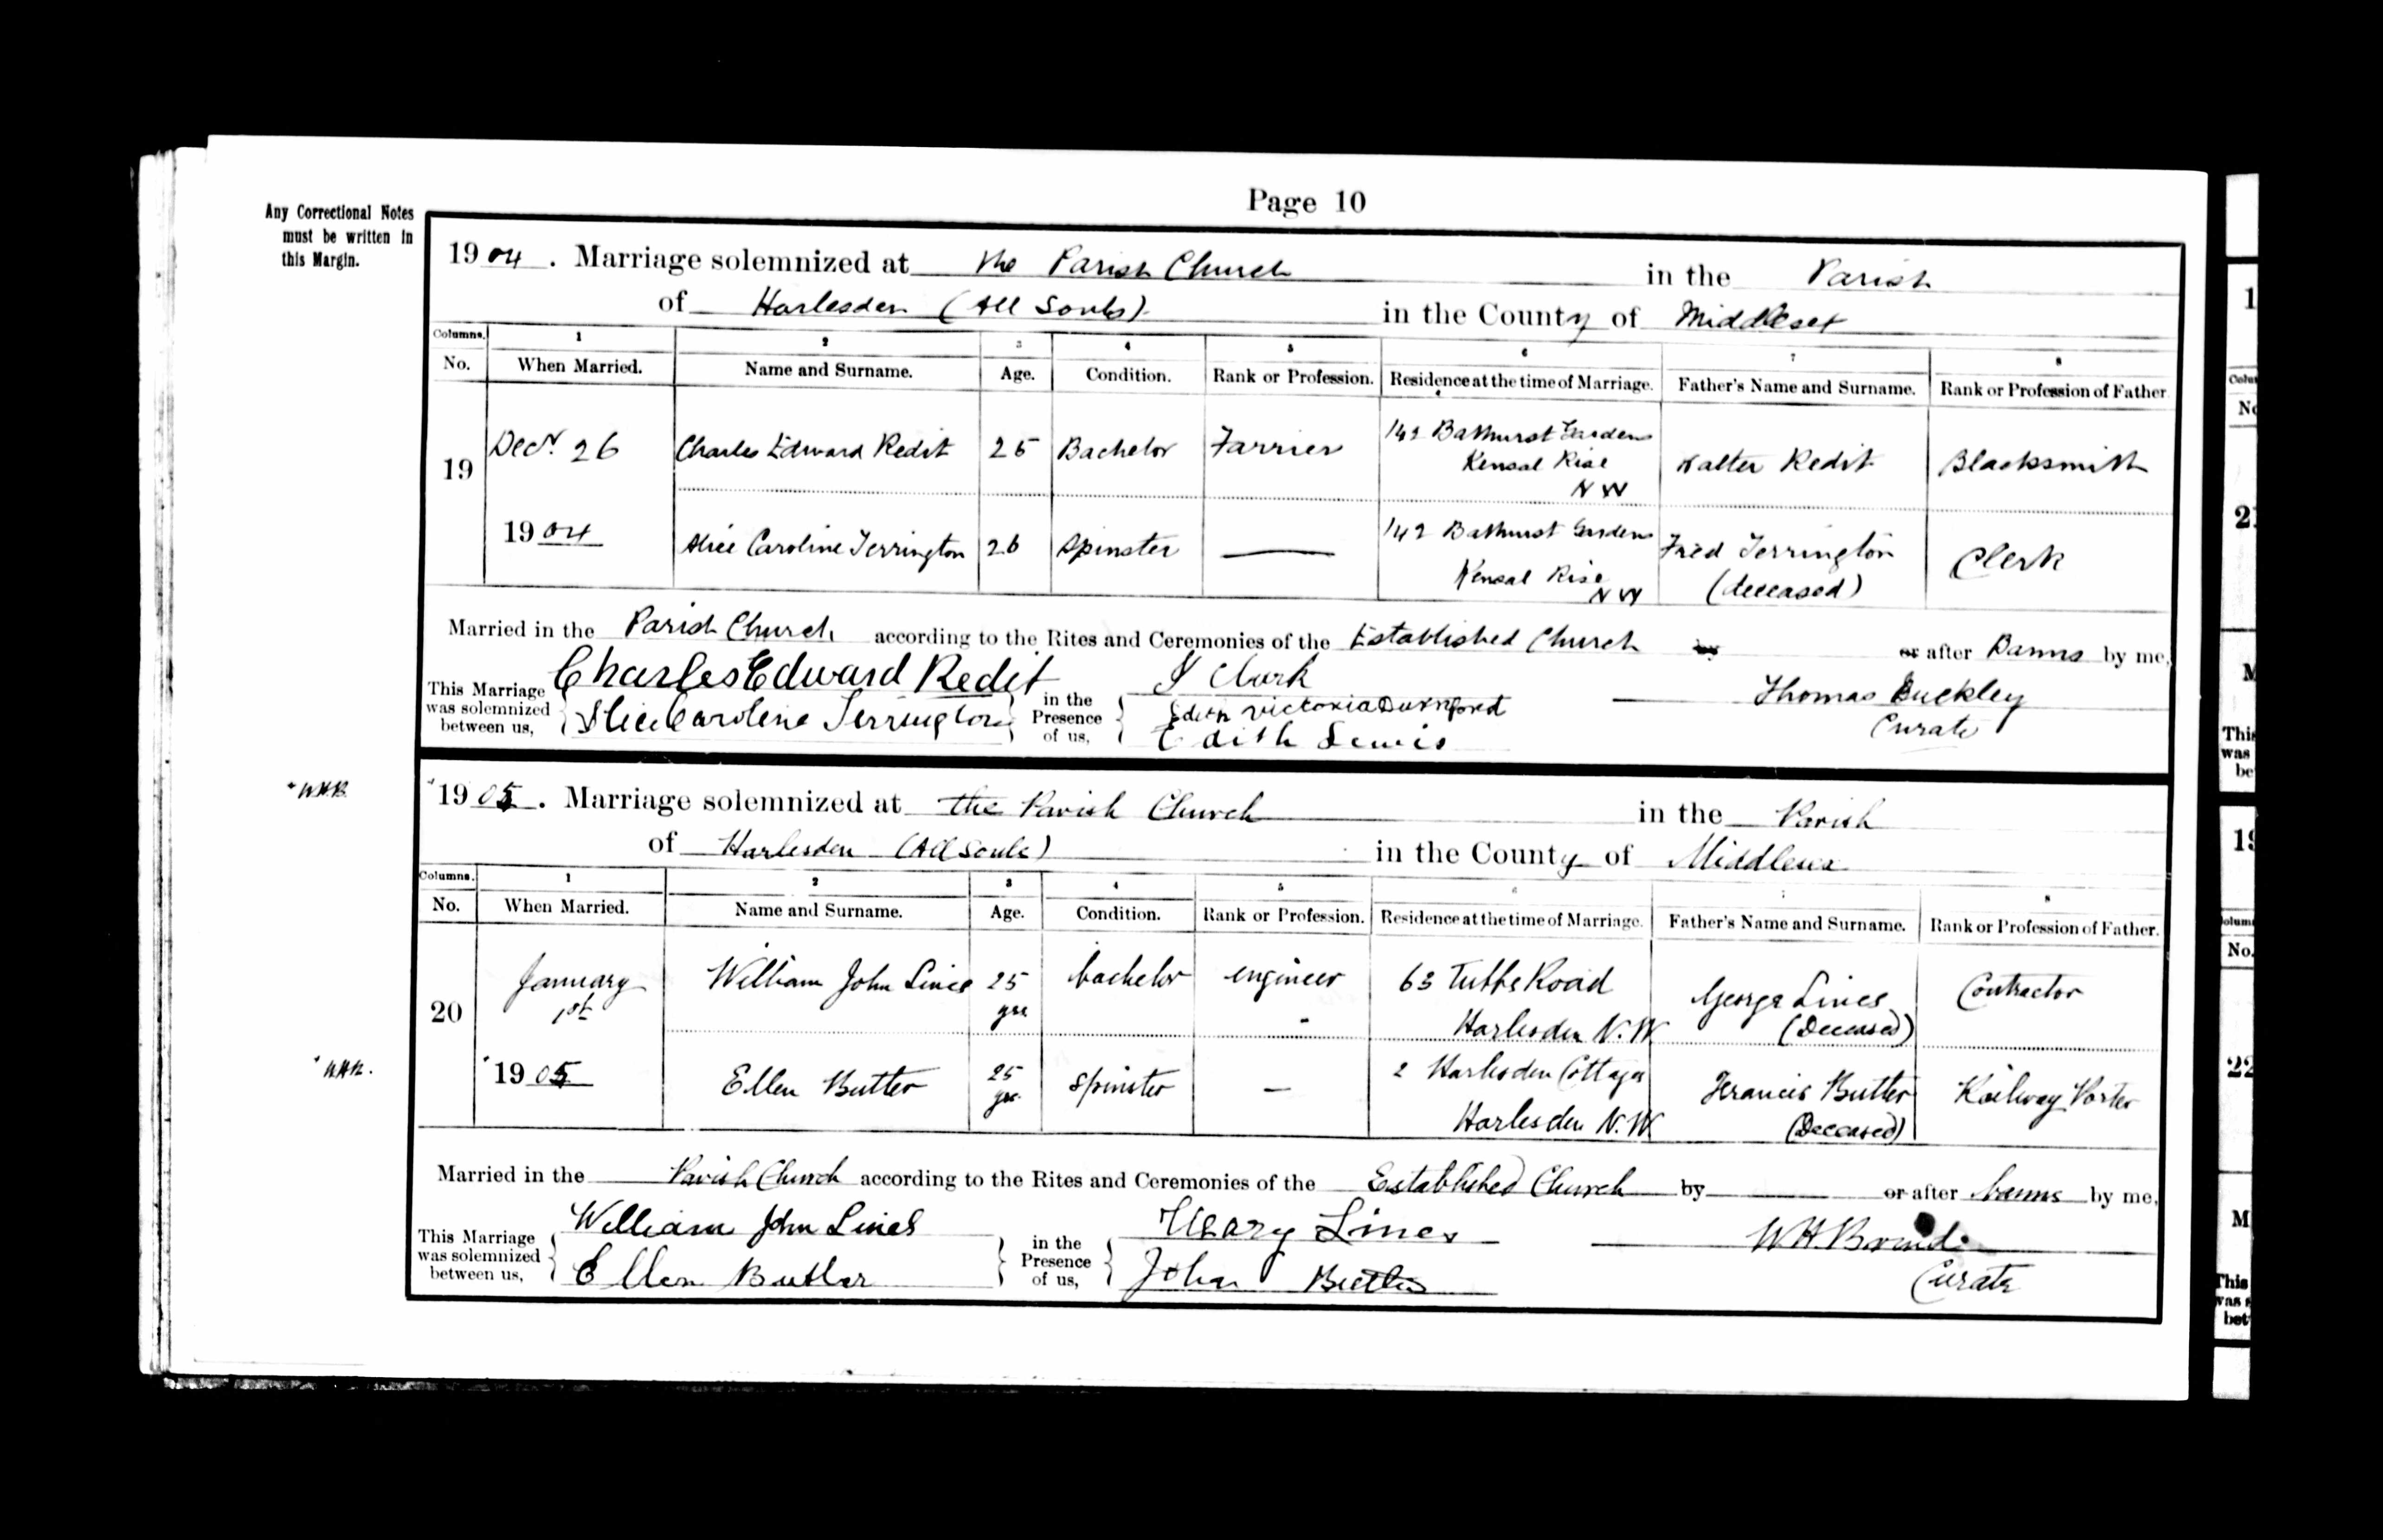 Page 10
Any Correctional Notes
must be written in
this Margin.
1904. Marriage solemnized at the Parish Church in the Parish
of Harlesden (All Souls) in the County of Middlesex
Columns. 1 2 3 4 5 6 7 8
No. When Married. Name and Surname. Age. Condition. Rank or Profession. Residence at the time of Marriage. Father's Name and Surname. Rank or Profession of Father
19 Decr. 26 Charles Edward Redit 25 Bachelor Farrier 142 Bathurst Gardens Kensal Rise NW Walter Redit Blacksmith
1904 Alice Caroline Terrington 26 Spinster — 142 Bathurst Gardens Kensal Rise NW Fred Terrington (deceased) Clerk
Married in the Parish Church according to the Rites and Ceremonies of the Established Church by or after Banns by me,
This Marriage was solemnized between us, Charles Edward Redit Alice Caroline Terrington in the Presence of us, Clark Edith Victoria Durnford Edith Lewis Thomas Buckley Curate
*WHB.
*1905. Marriage solemnized at the Parish Church in the Parish
of Harlesden (All Souls) in the County of Middlesex
Columns. 1 2 3 4 5 6 7 8
No. When Married. Name and Surname. Age. Condition. Rank or Profession. Residence at the time of Marriage. Father's Name and Surname. Rank or Profession of Father.
20 January 1st William John Lines 25 yrs bachelor engineer 63 Tubbs Road Harlesden N.W. George Lines (Deceased) Contractor
*WHB. *1905 Ellen Butler 25 yrs spinster — 2 Harlesden Cottages Harlesden N.W. Francis Butler (Deceased) Railway Porter
Married in the Parish Church according to the Rites and Ceremonies of the Established Church by or after banns by me,
This Marriage was solemnized between us, William John Lines Ellen Butler in the Presence of us, Lines John Butler W.H. Curate